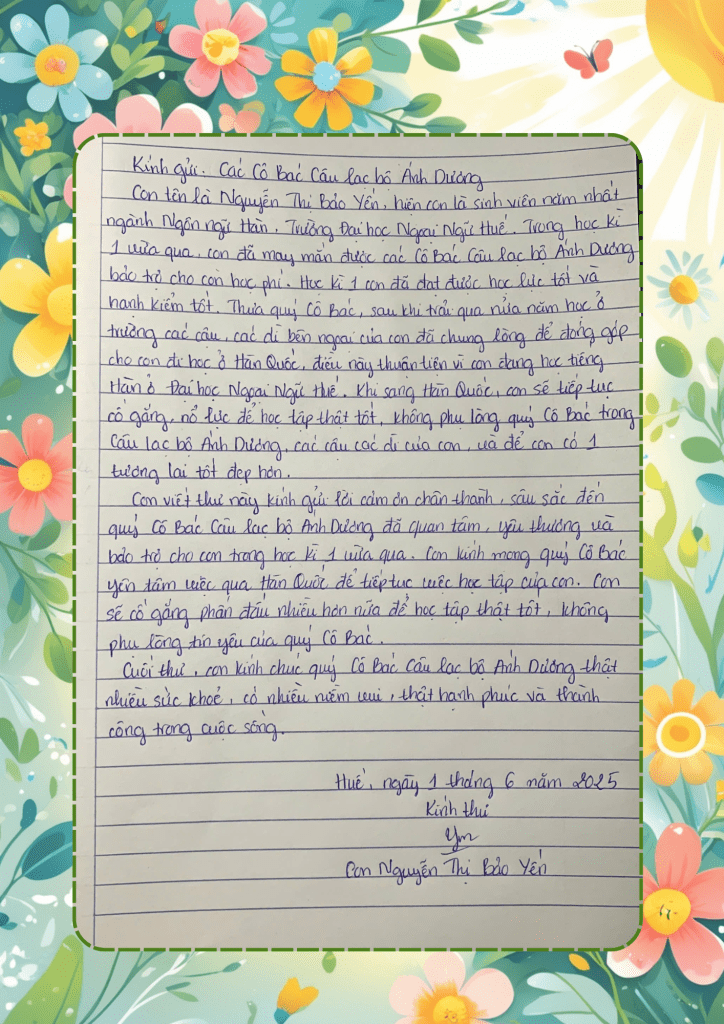 Kính gửi. Các Cô Bác Câu lạc bộ Ánh Dương
Con tên là Nguyễn Thị Bảo Yến, hiện con là sinh viên năm nhất
ngành Ngôn ngữ Hàn, Trường Đại học Ngoại Ngữ Huế. Trong học kì
1 vừa qua, con đã may mắn được các Cô Bác Câu lạc bộ Ánh Dương
bảo trợ cho con học phí. Học kì 1 con đã đạt được học lực tốt và
hạnh kiểm tốt. Thưa quý Cô Bác, sau khi trải qua nửa năm học ở
trường các cậu, các dì bên ngoại của con đã chung lòng để đóng góp
cho con đi học ở Hàn Quốc, điều này thuận tiện vì con đang học tiếng
Hàn ở Đại học Ngoại Ngữ Huế. Khi sang Hàn Quốc, con sẽ tiếp tục
cố gắng, nổ lực để học tập thật tốt, không phụ lòng quý Cô Bác trong
Câu lạc bộ Ánh Dương, các cậu các dì của con, và để con có 1
tương lai tốt đẹp hơn.
Con viết thư này kính gửi lời cảm ơn chân thành, sâu sắc đến
quý Cô Bác Câu lạc bộ Ánh Dương đã quan tâm, yêu thương và
bảo trợ cho con trong học kì 1 vừa qua. Con kính mong quý Cô Bác
yên tâm việc qua Hàn Quốc để tiếp tục việc học tập của con. Con
sẽ cố gắng phấn đấu nhiều hơn nữa để học tập thật tốt, không
phụ lòng tin yêu của quý Cô Bác.
Cuối thư, con kính chúc quý Cô Bác Câu lạc bộ Ánh Dương thật
nhiều sức khoẻ, có nhiều niềm vui, thật hạnh phúc và thành
công trong cuộc sống.
Huế, ngày 1 tháng 6 năm 2025
Kính thư
Yến
Con Nguyễn Thị Bảo Yến